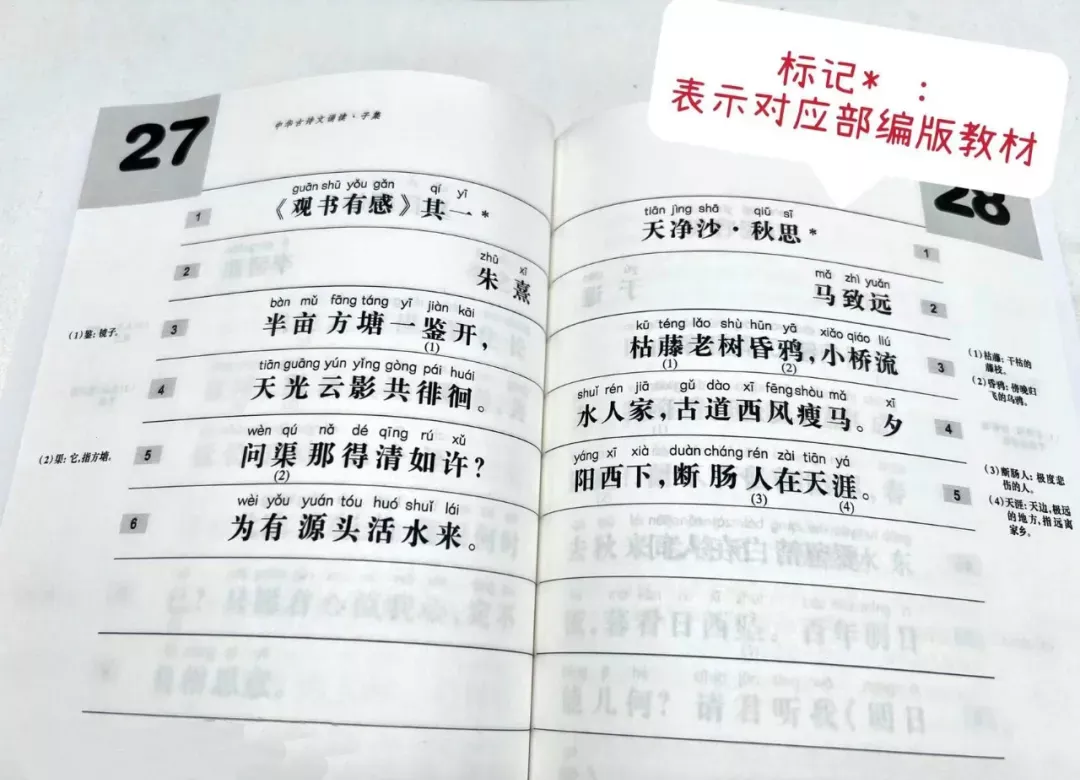 标记* ：
表示对应部编版教材
27
中华古诗文诵读·子集
guān shū yǒu gǎn qí yī
1 《观书有感》其一*
zhū xī
2 朱熹
bàn mǔ fāng táng yī jiàn kāi
(1)鉴：镜子. 3 半亩方塘一鉴开，
(1)
tiān guāng yún yǐng gòng pái huái
4 天光云影共徘徊。
wèn qú nǎ dé qīng rú xǔ
(2)渠：它，指方塘. 5 问渠那得清如许？
(2)
wèi yǒu yuán tóu huó shuǐ lái
6 为有源头活水来。
28
tiān jìng shā qiū sī
天净沙·秋思* 1
mǎ zhì yuǎn
马致远 2
kū téng lǎo shù hūn yā xiǎo qiáo liú
枯藤老树昏鸦，小桥流 3
(1) (2)
(1)枯藤：干枯的
藤枝。
(2)昏鸦：傍晚归
飞的乌鸦。
shuǐ rén jiā gǔ dào xī fēng shòu mǎ xī
水人家，古道西风瘦马。夕 4
yáng xī xià duàn cháng rén zài tiān yá
阳西下，断肠人在天涯。 5
(3) (4)
(3)断肠人：极度悲
伤的人。
(4)天涯：天边，极远
的地方，指远离
家乡。